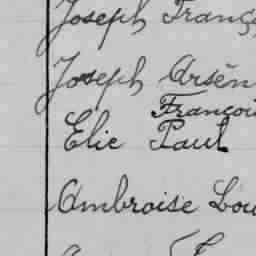 Joseph Franç
Joseph Arsèn
Françoi
Elie Paul
Ambroise Lou